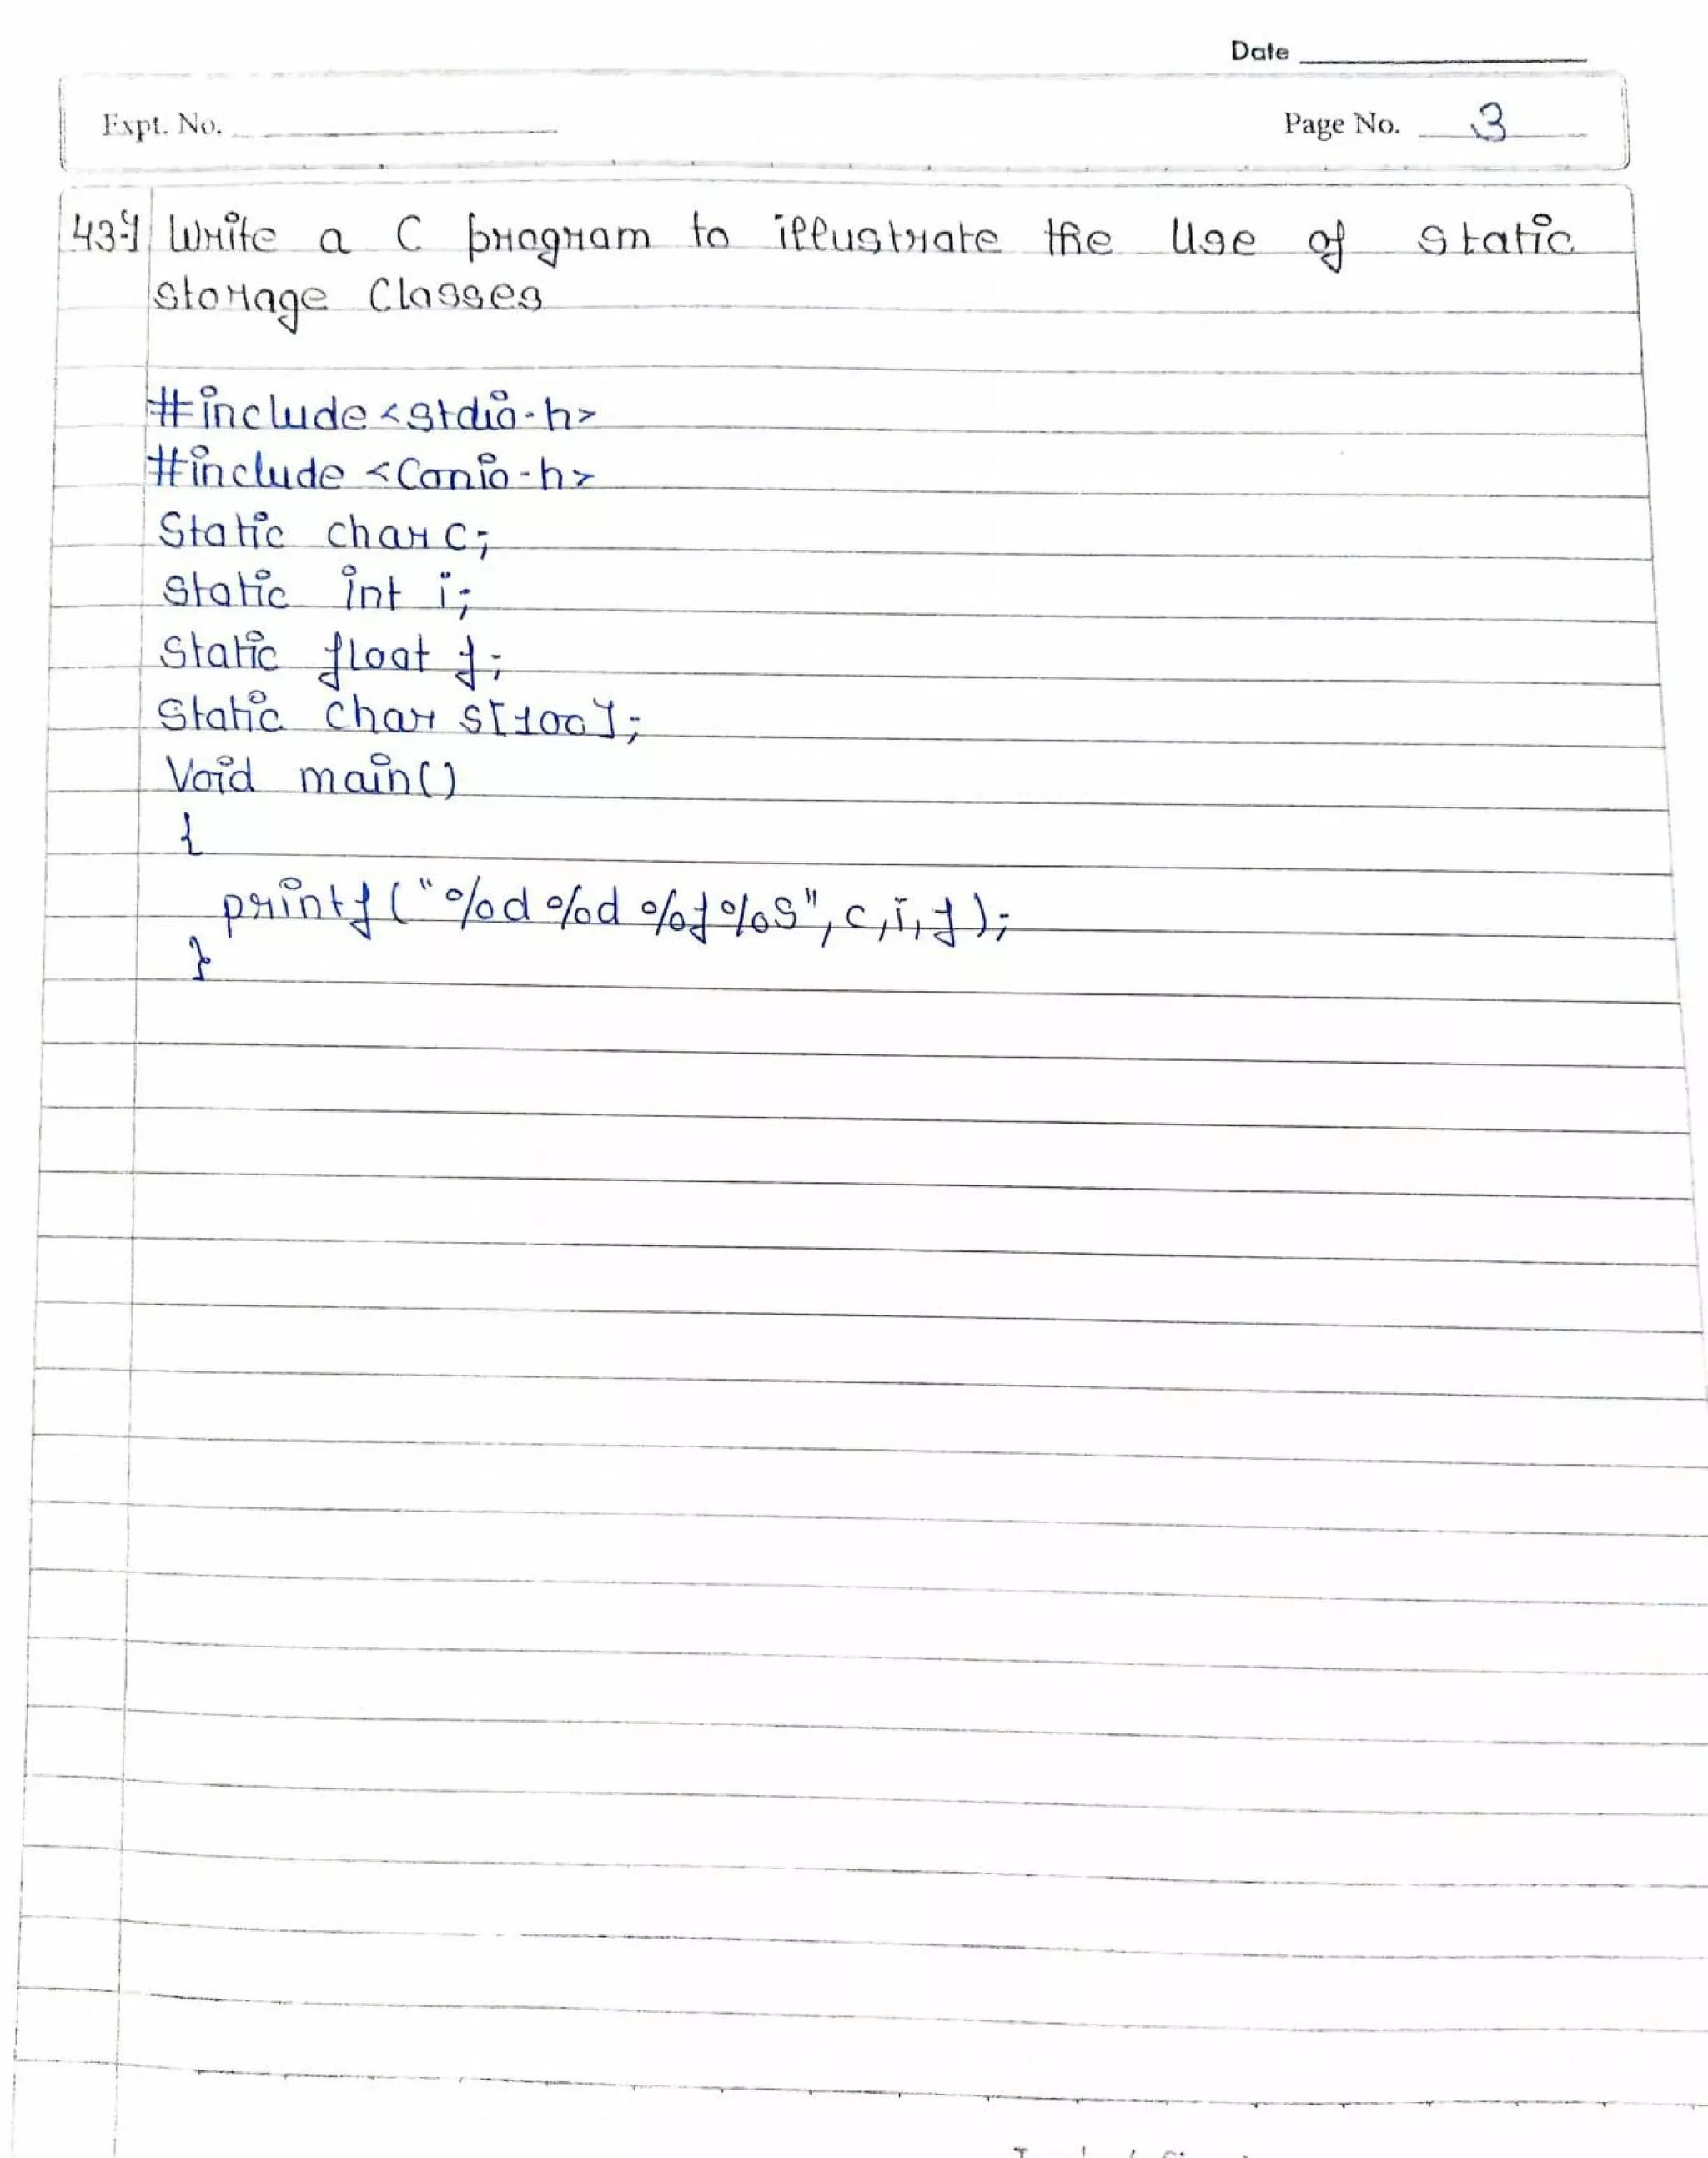 Date
Expt. No.
Page No. 3
43-) Write a C program to illustrate the Use of static
storage Classes
#include<stdio.h>
#include <Conio.h>
Static char c;
Static int i;
Static float f;
Static char s[100];
Void main()
{
printf("%d %d %f %s", c, i, f);
}